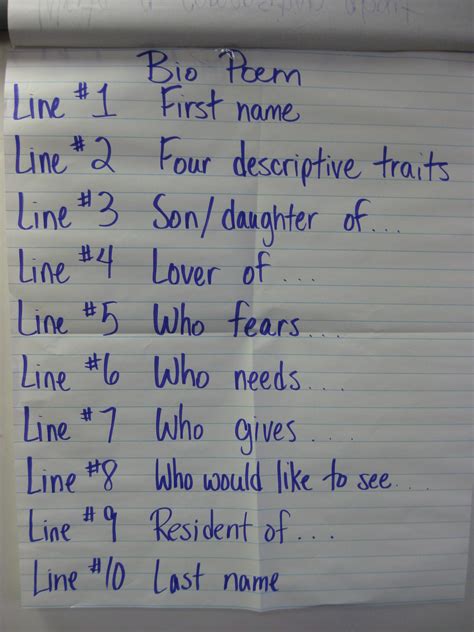 Bio Poem
Line #1 First name
Line #2 Four descriptive traits
Line #3 Son/daughter of...
Line #4 Lover of...
Line #5 Who fears...
Line #6 Who needs...
Line #7 Who gives....
Line #8 Who would like to see...
Line #9 Resident of...
Line #10 Last name